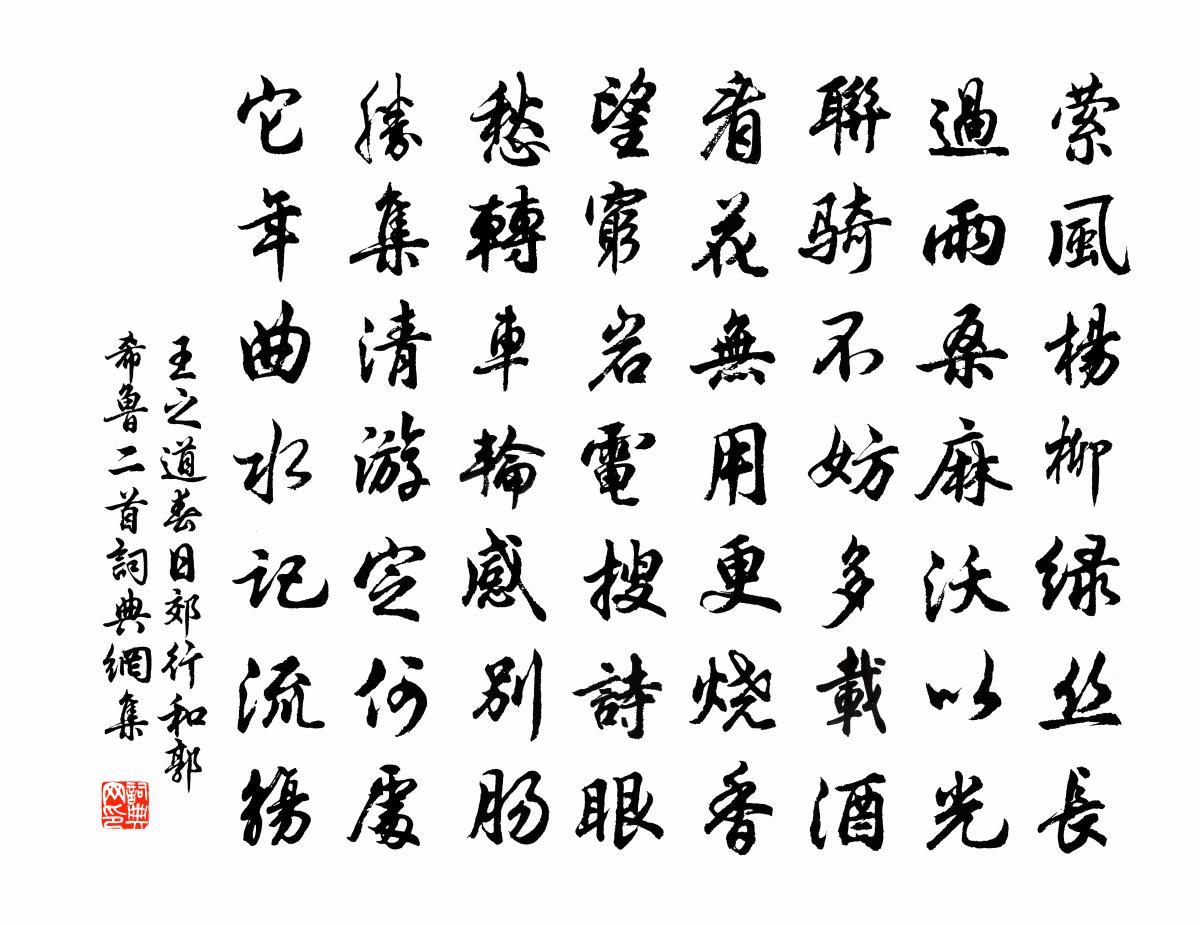 萦風楊柳绿丝長
過雨桑麻沃以光
聯騎不妨多載酒
看花無用更烧香
望窮岩電搜詩眼
愁轉車輪感别肠
勝集清游定何處
它年曲水記流觴
王之道春日郊行和郭
希魯二首詞典網集
詞典网印